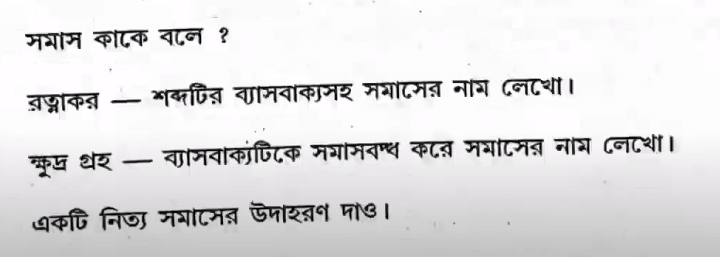 সমাস কাকে বলে ?
রত্নাকর — শব্দটির ব্যাসবাক্যসহ সমাসের নাম লেখো।
ক্ষুদ্র গ্রহ — ব্যাসবাক্যটিকে সমাসবদ্ধ করে সমাসের নাম লেখো।
একটি নিত্য সমাসের উদাহরণ দাও।